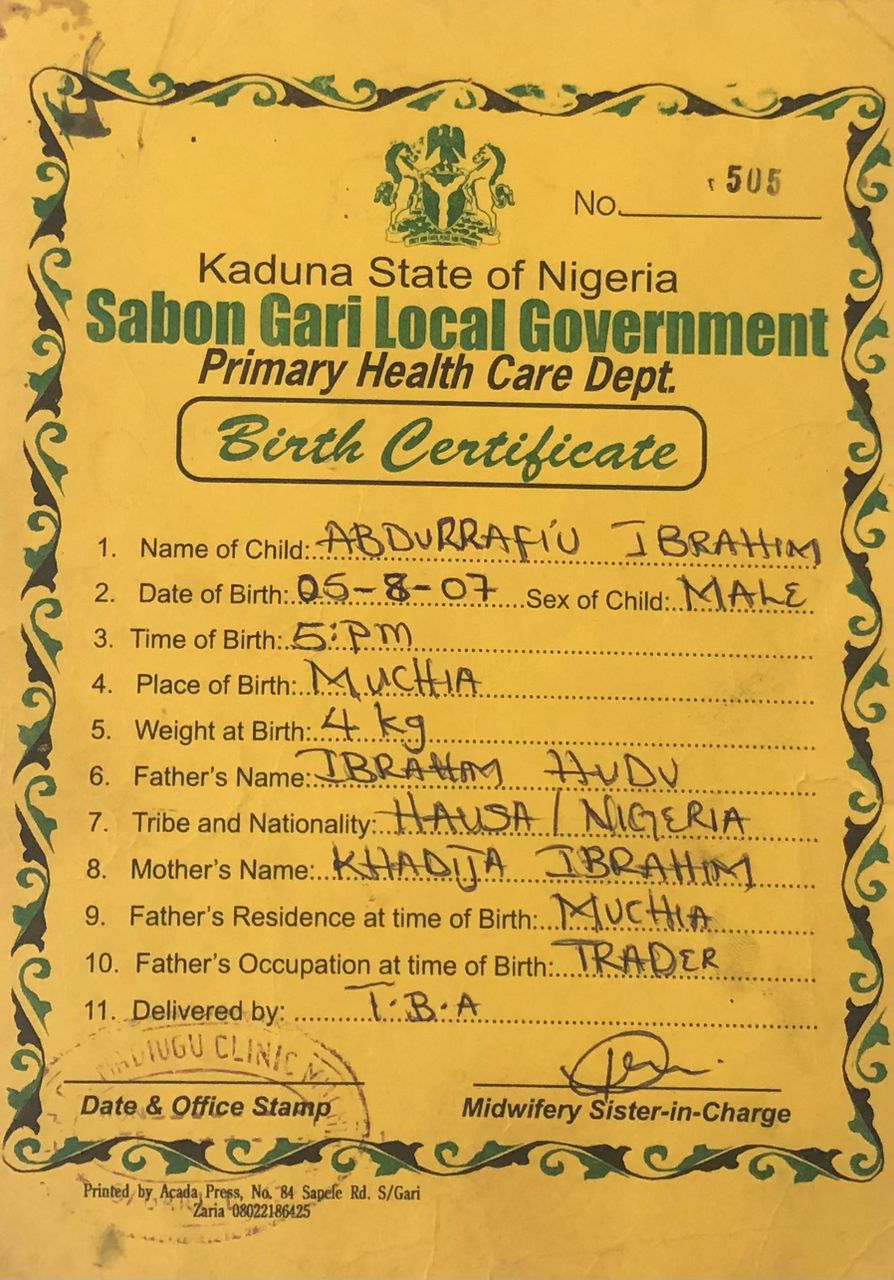 No. 505
Kaduna State of Nigeria
Sabon Gari Local Government
Primary Health Care Dept.
Birth Certificate
1. Name of Child: ABDURRAFI'U IBRAHIM
2. Date of Birth: 05-8-07 Sex of Child: MALE
3. Time of Birth: 5:PM
4. Place of Birth: MUCHIA
5. Weight at Birth: 4 kg
6. Father's Name: IBRAHIM HUDU
7. Tribe and Nationality: HAUSA / NIGERIA
8. Mother's Name: KHADIJA IBRAHIM
9. Father's Residence at time of Birth: MUCHIA
10. Father's Occupation at time of Birth: TRADER
11. Delivered by: T.B.A
CLINIC
Date & Office Stamp Midwifery Sister-in-Charge
Printed by Acada Press, No. 84 Sapele Rd. S/Gari
Zaria 08022186425